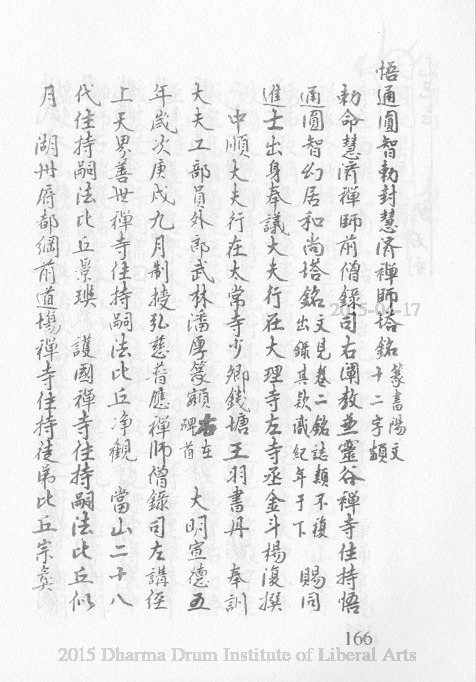 悟通圓智勅封慧濟禪師塔銘篆書陽文十二字額
勅命慧濟禪師前僧錄司右闡教並靈谷禪寺住持悟
通圓智幻居和尚塔銘文見卷二銘誌類不複出錄其款識紀年于下 賜同
進士出身奉議大夫行在大理寺左寺丞金斗楊復撰
中順大夫行在太常寺少卿錢塘王羽書丹 奉訓
大夫工部員外郎武林潘厚篆額在碑首 大明宣德五
年歲次庚戌九月制授弘慈普應禪師僧錄司左講經
上天界善世禪寺住持嗣法比丘淨觀 當山二十八
代住持嗣法比丘景 護國禪寺住持嗣法比丘似
月 湖州府都綱前道場禪寺住持徒弟比丘宗
166
2015-04-17
2015 Dharma Drum Institute of Liberal Arts